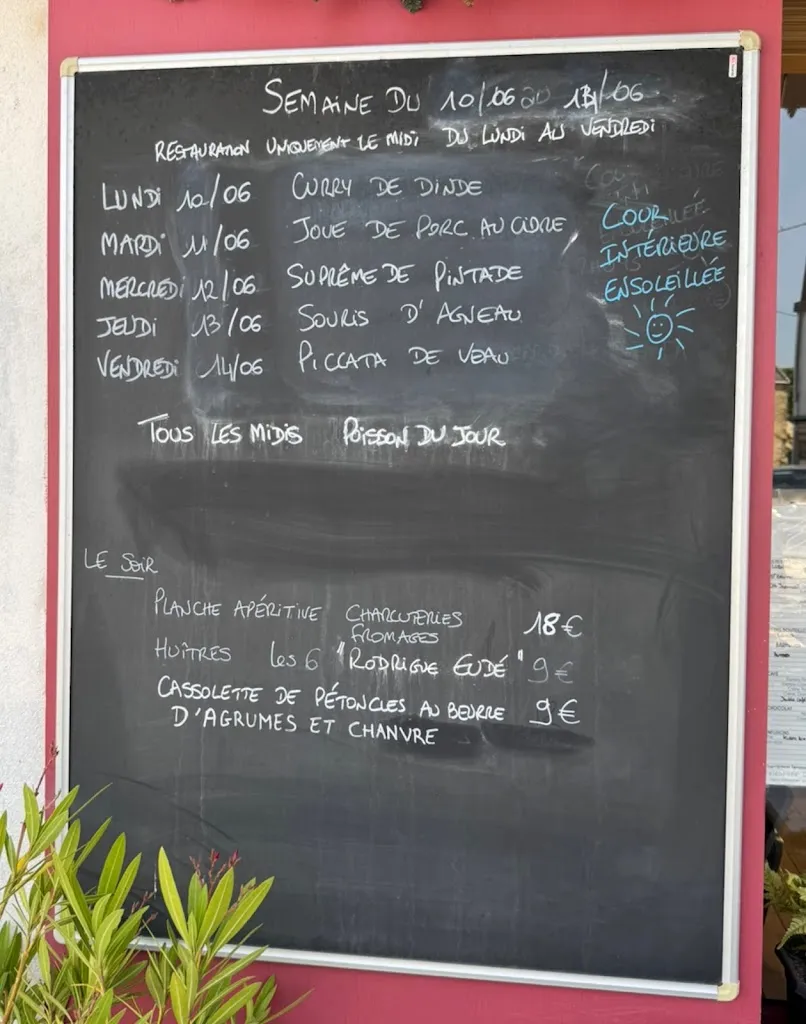 SEMAINE DU 10/06 au 14/06
RESTAURATION UNIQUEMENT LE MIDI DU LUNDI AU VENDREDI
LUNDI 10/06 CURRY DE DINDE
MARDI 11/06 JOUE DE PORC AU CIDRE
MERCREDI 12/06 SUPRÊME DE PINTADE
JEUDI 13/06 SOURIS D'AGNEAU
VENDREDI 14/06 PICCATA DE VEAU
COUR
INTÉRIEURE
ENSOLEILLÉE
TOUS LES MIDIS POISSON DU JOUR
LE SOIR
PLANCHE APÉRITIVE CHARCUTERIES 18€
FROMAGES
HUÎTRES les 6 "RODRIGUE EUDÉ" 9€
CASSOLETTE DE PÉTONCLES AU BEURRE 9€
D'AGRUMES ET CHANVRE